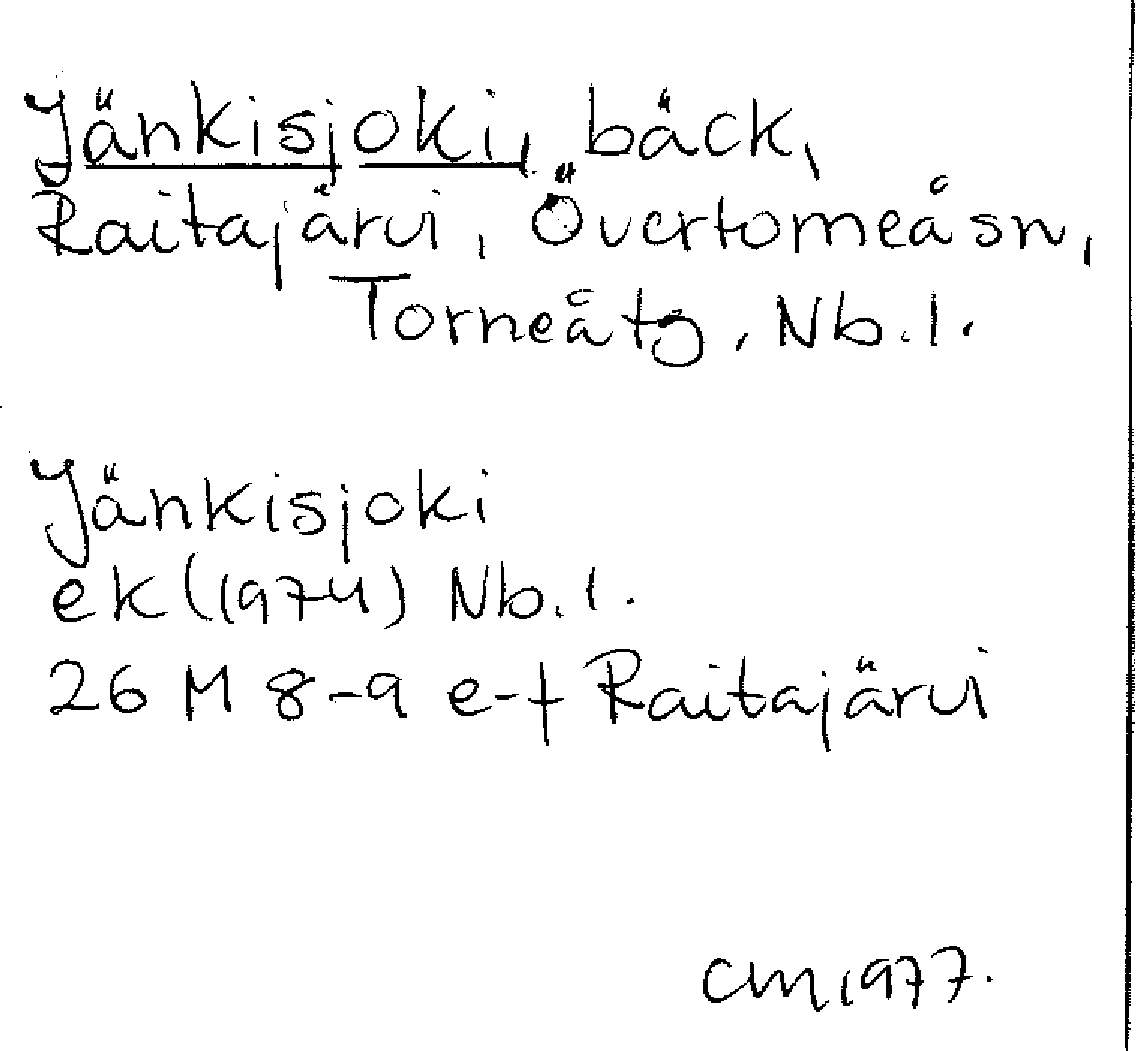 Jänkisjoki, bäck,
Raitajärvi, Övertorneå sn,
Torneå tg, Nb. l.
Jänkisjoki
ek (1974) Nb. l.
26 M 8-9 e-f Raitajärvi
CM 1977.